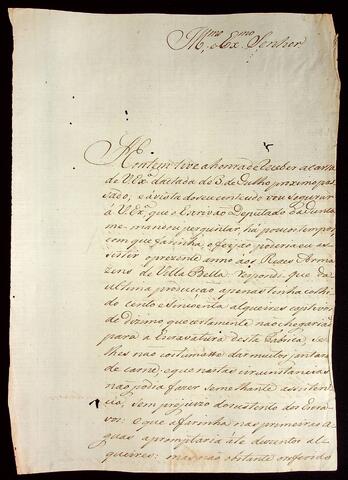 Illmo. e Exmo. Senhor
Hontem tive a honra de receber a carta
de V. Exa. dactada de 3 de Julho proximo pas
sado, e à vista do seu conteudo vou segurar
à V. Exa. que o Escrivão Deputado da Junta
me mandou perguntar, há pouco tempo,
com que farinha, e feijão poderia eu as
sistir o prezente anno aos Reaes Arma
zens de Villa Bella: respondi que da
ultima producção apenas tenha colhi
do cento e sincoenta alqueires captivos
de Dizimo que certamente não chegarião
para a Escravatura desta Fabrica, se
lhes não costumasse dar muitos jantares
de carne; e que nestas circunstancias
não podia fazer semelhante assisten
cia, sem prejuizo do sustento dos Escra
vos: e que a farinha nas primeiras a
guas apromptaria até duzentos al
queires: mas não obstante o referido